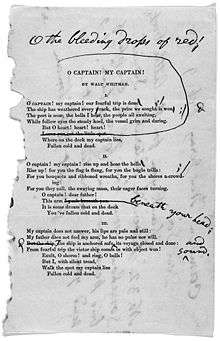 O the bleeding drops of red!
O CAPTAIN! MY CAPTAIN!
BY WALT WHITMAN.
I.
O CAPTAIN! my captain! our fearful trip is done;
The ship has weathered every rack, the prize we sought is won;
The port is near, the bells I hear, the people all exulting,
While follow eyes the steady keel, the vessel grim and daring.
But O heart! heart! heart!
Where on the deck my captain lies,
Fallen cold and dead.
II.
O captain! my captain! rise up and hear the bells;
Rise up! for you the flag is flung, for you the bugle trills:
For you bouquets and ribboned wreaths, for you the shores a-crowding:
For you they call, the swaying mass, their eager faces turning.
O captain! dear father!
This arm
beneath your head;
It is some dream that on the deck
You've fallen cold and dead.
III.
My captain does not answer, his lips are pale and still:
My father does not feel my arm, he has no pulse nor will.
ship is anchored safe, its voyage closed and done:
and
sound
From fearful trip the victor ship comes in with object won!
Exult, O shores! and ring, O bells!
But I, with silent tread,
Walk the spot my captain lies
Fallen cold and dead.